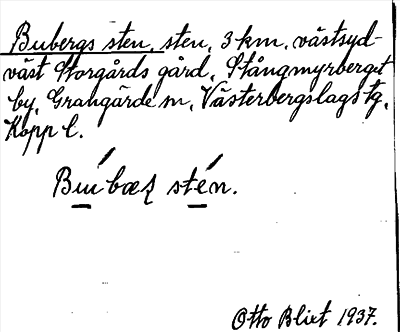 Bubergs sten, sten, 3 km. västsyd-
väst Storgårds gård, Stångmyrberget
by, Grangärde sn, Västerbergslags tg,
Kopp l.
sten.
Otto Blixt 1937.